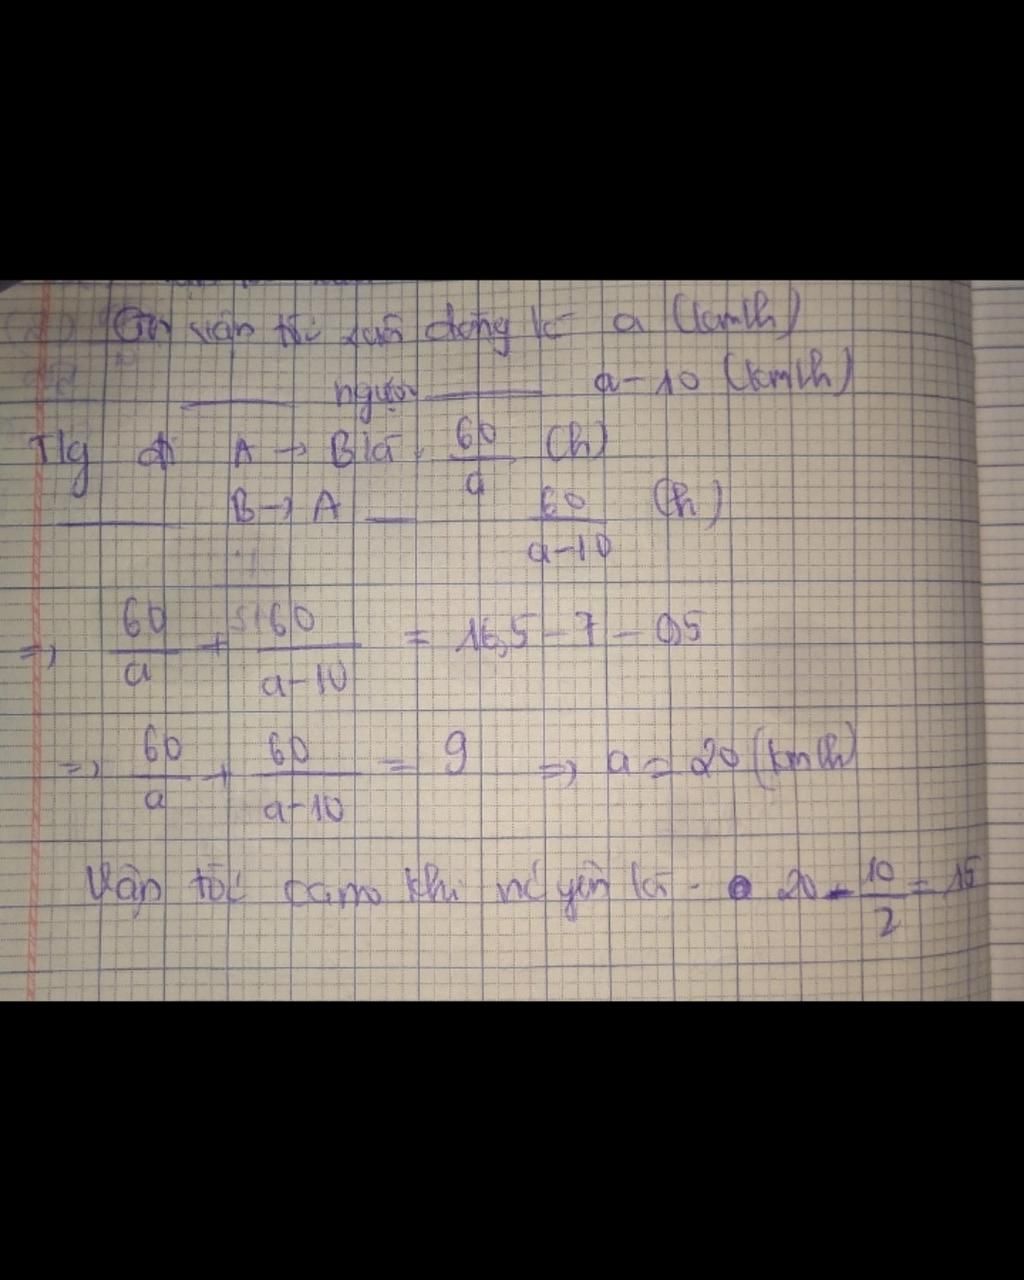 Gọi vận tốc xuôi dòng là a (km/h)
_____ ngược _____ a-10 (km/h)
Tlg đi A → B là 60/a (h)
_____ B → A __ 60/a-10 (h)
=> 60/a + 60/a-10 = 16,5 - 7 - 0,5
=> 60/a + 60/a-10 = 9 => a = 20 (km/h)
Vận tốc cano khi nc yên là 20 - 10/2 = 15